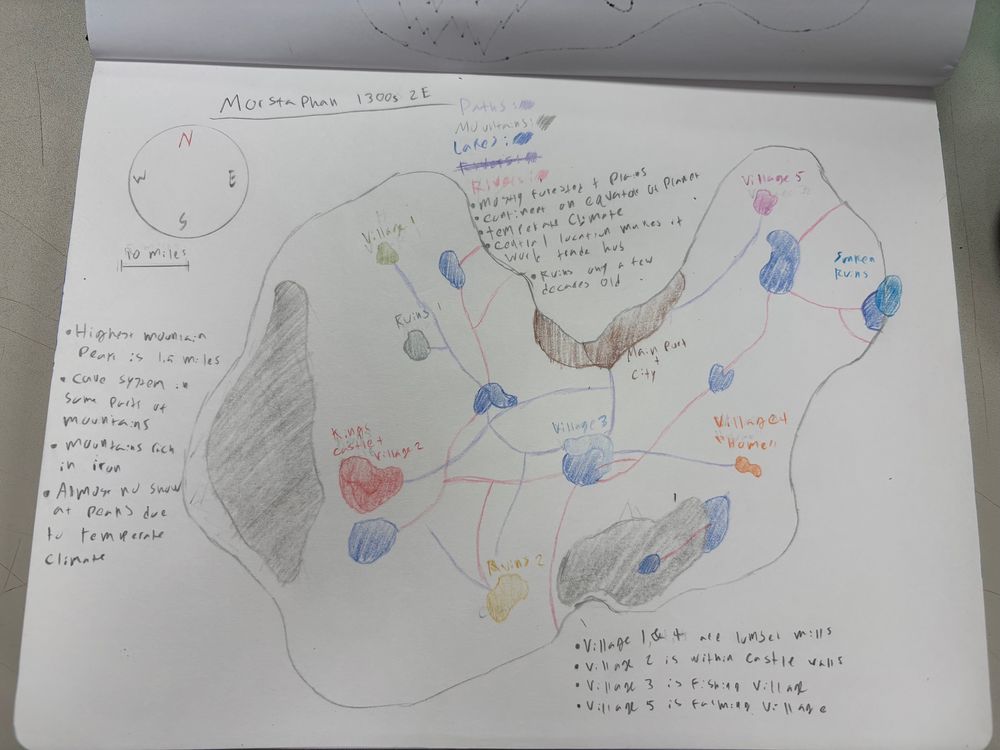 Morstaphan 1300s 2E
Paths:
Mountains:
Lakes:
Rivers:
N
W
E
S
10 miles
• Mostly forested + Plains
• Continent on equator of Planet
• temperate climate
• Central location makes it
world trade hub
• Ruins only a few
decades old
Village 5
Village 1
Sunken
Ruins
Ruins 1
Main Port
+
City
• Highest mountain
Peak is 1.6 miles
• cave system in
some parts of
mountains
• mountains rich
in iron
• Almost no snow
at peaks due
to temperate
climate
Kings
Castle +
Village 2
Village 3
Village 4
"Home"
1
Ruins 2
• Village 1, & 4 are lumber mills
• Village 2 is within castle walls
• Village 3 is fishing village
• Village 5 is farming village